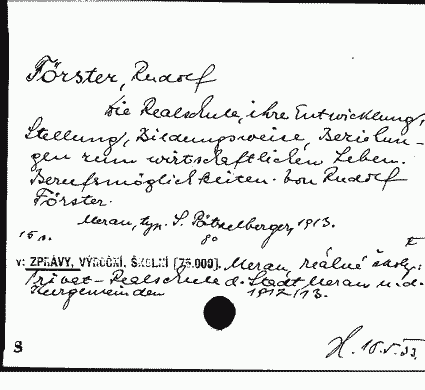 Förster, Rudolf
Die Realschule, ihre Entwicklung,
Stellung, Bildungsweise, Beziehun-
gen zum wirtschaftlichen Leben.
Berufsmöglichkeiten. Von Rudolf
Förster.
Meran, typ. S. Pötzelberger, 1913.
15 s. 8°
v: ZPRÁVY, VÝROČNÍ, ŠKOLNÍ [75.009]. Meran, reálné školy:
Privat-Realschule d. Stadt Meran u. d.
Kurgemeinden 1912/13.
S
H. 16.V.33.